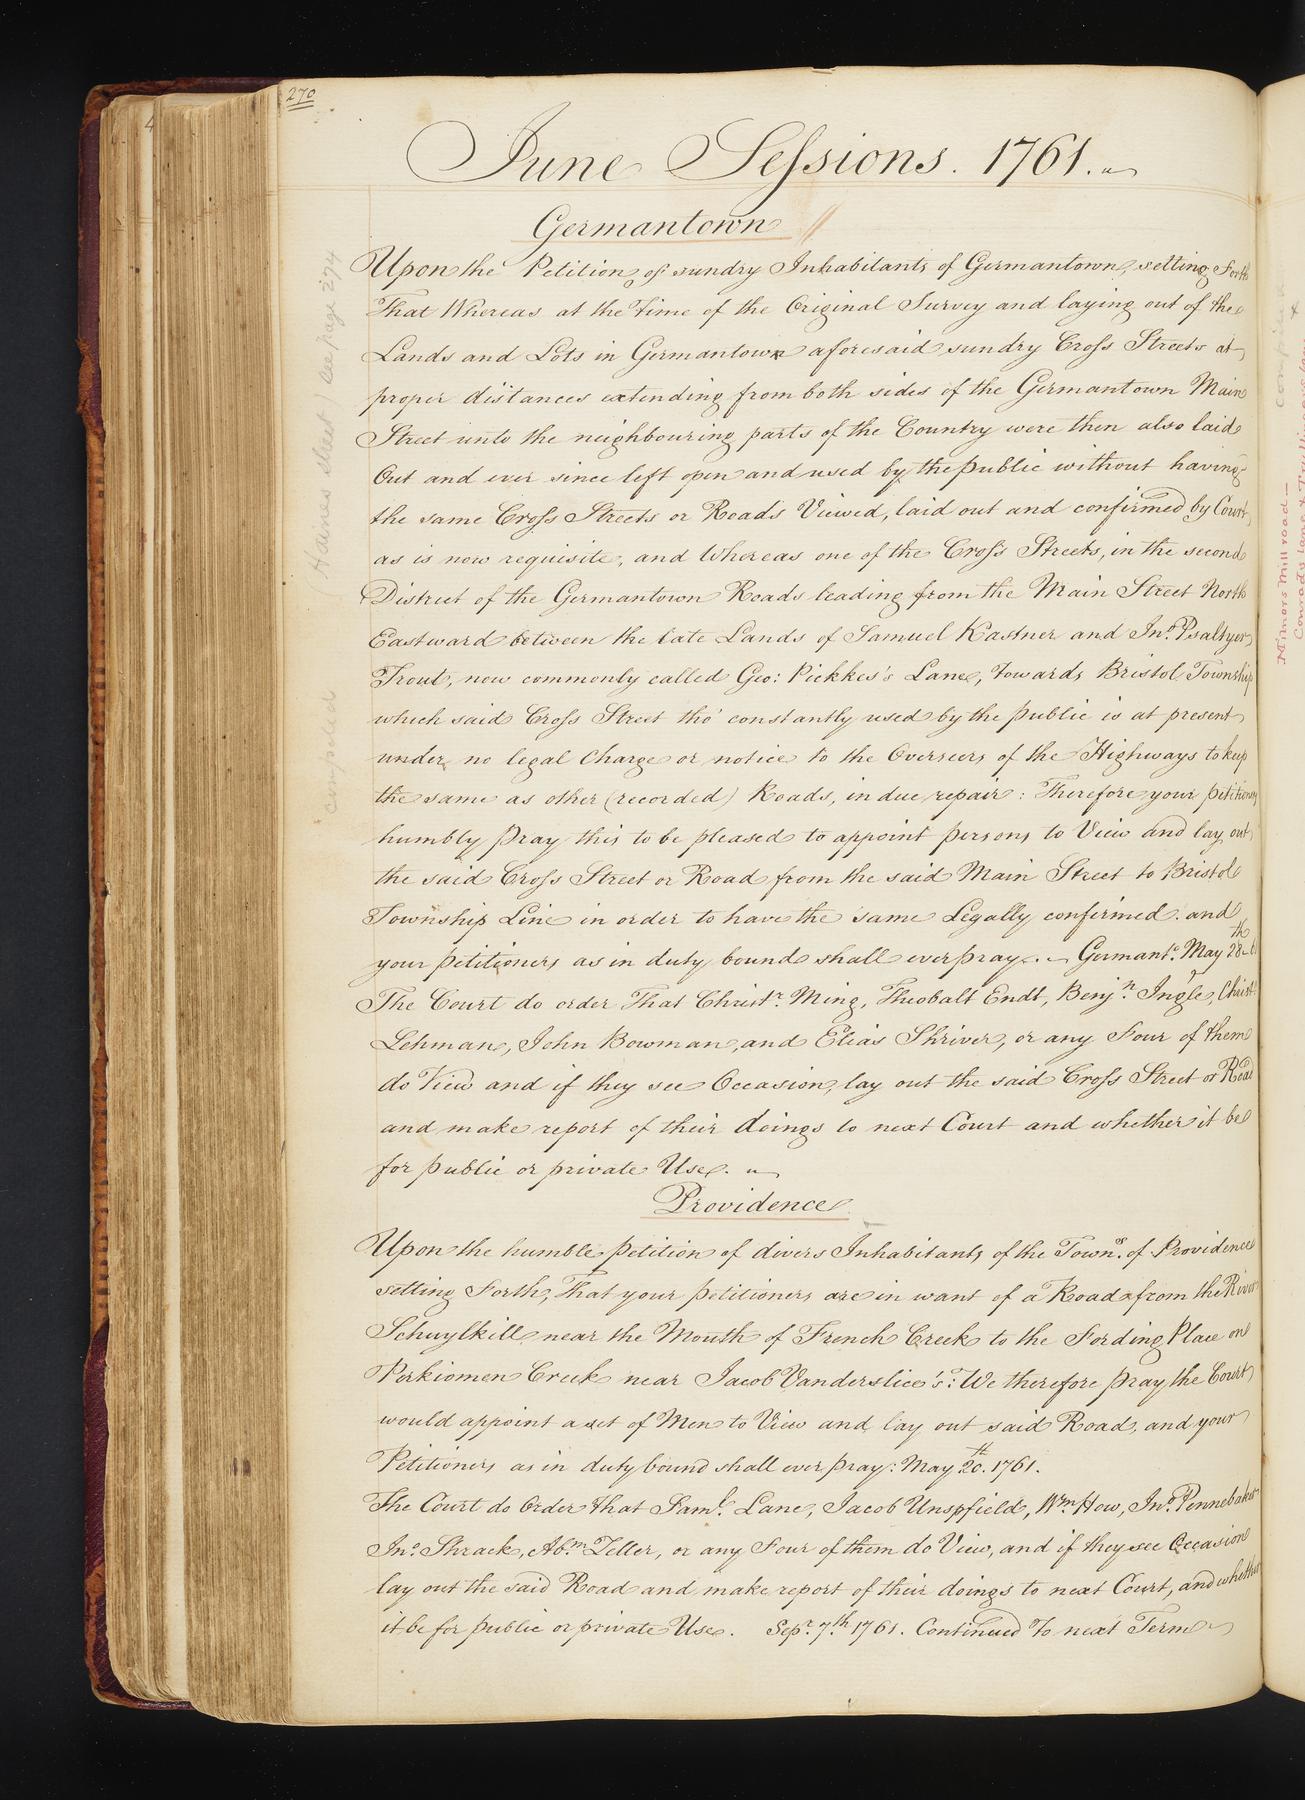 270
June Sessions. 1761.
Germantown
Upon the Petition of sundry Inhabitants of Germantown, setting Forth
That Whereas at the Time of the Original Survey and laying out of the
Lands and Lots in Germantown aforesaid sundry Cross Streets at
proper distances extending from both sides of the Germantown Main
Street unto the neighbouring parts of the Country were then also laid
Out and ever since left open and used by the public without having
the same Cross Streets or Roads Viewed, laid out and confirmed by Court,
as is now requisite, and Whereas one of the Cross Streets, in the second
District of the Germantown Roads leading from the Main Street North
Eastward between the late Lands of Samuel Kastner and Jno. Psaltyer
Trout, now commonly called Geo: Pickkes's Lane, towards Bristol Township
which said Cross Street tho' constantly used by the public is at present
under no legal Charge or notice to the Overseers of the Highways to keep
the same as other (recorded) Roads, in due repair: Therefore your petitioners
humbly pray this to be pleased to appoint persons to View and lay out
the said Cross Street or Road from the said Main Street to Bristol
Township Line in order to have the same Legally confirmed. and
your petitioners as in duty bound shall ever pray. Germant. May 28th
The Court do order That Christr. Ming, Theobalt Endt, Benjn. Ingle, Christ.
Lehman, John Bowman, and Elias Shriver, or any Four of them
do View and if they see Occasion, lay out the said Cross Street or Road
and make report of their doings to next Court and whether it be
for public or private Use.
Providence
Upon the humble petition of divers Inhabitants of the Towns. of Providence
setting Forth, That your petitioners are in want of a Road from the River
Schuylkill near the Mouth of French Creek to the Fording Place on
Perkiomen Creek near Jacob Vanderslice's: We therefore pray the Court
would appoint a set of Men to View and lay out said Road, and your
Petitioners as in duty bound shall ever pray: May 20th. 1761.
The Court do Order that Saml. Lane, Jacob Unspfield, Wm. How, Jno. Pennebaker
Jno. Shrack, Abm. Zeller, or any Four of them do View, and if they see Occasion
lay out the said Road and make report of their doings to next Court, and whether
it be for public or private Use. Sepr. 7th. 1761. Continued To next Term
(Haines street) See page 274
compared
Minors Mill road —